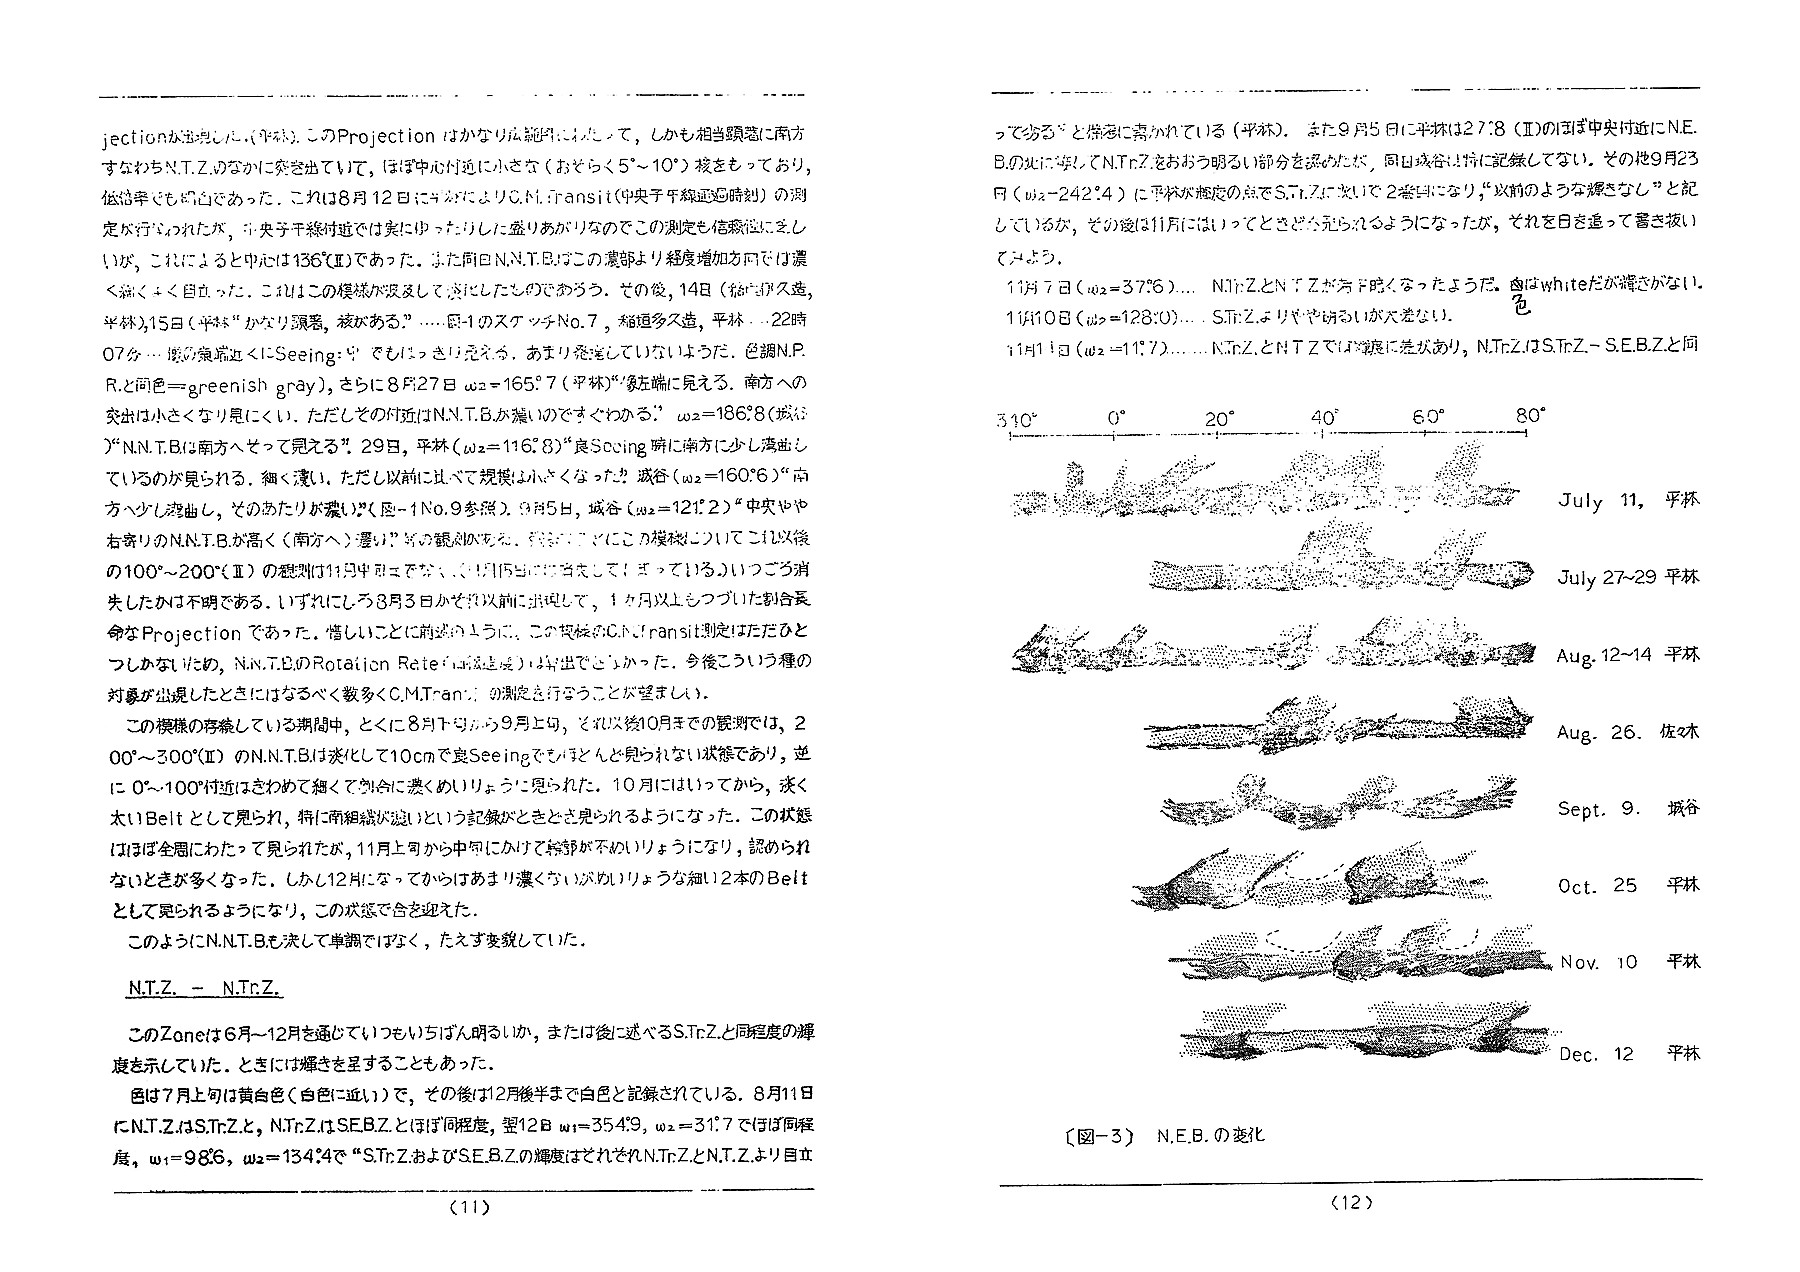 jectionが出現した.(平林). このProjection はかなり広範囲にわたって, しかも相当顕著に南方
すなわちN.T.Z.のなかに突き出ていて, ほぼ中心付近に小さな (おそらく5°〜10°) 核をもっており,
低倍率でも明白であった. これは8月12日に平林によりC.M.Transit(中央子午線通過時刻) の測
定が行なわれたが, 中央子午線付近では実にゆったりした盛りあがりなのでこの測定も信頼性に乏し
いが, これによると中心は136°(Ⅱ)であった. また同日N.N.T.B.はこの濃部より経度増加方向では濃
く細くよく目立った. これはこの模様が波及して濃化したものであろう. その後, 14日 (
平林),15日 (平林“かなり顕著, 核がある.” ……図-1のスケッチNo.7 , 稲垣多久造, 平林 … 22時
07分 … 像の東端近くにSeeing: 中 でもはっきり見える. あまり発達していないようだ. 色調N.P.
R.と同色=greenish gray), さらに8月27日 ω₂=165.°7 (平林)“像左端に見える. 南方への
突出は小さくなり見にくい. ただしその付近はN.N.T.B.が濃いのですぐわかる.” ω₂=186.°8(城谷
)“N.N.T.B.は南方へそって見える”. 29日, 平林 (ω₂=116.°8) “良Seeing 時に南方に少し湾曲し
ているのが見られる. 細く濃い. ただし以前に比べて規模は小さくなった” 城谷 (ω₂=160.°6) “南
方へ少し湾曲し, そのあたりが濃い.”(図-1No.9参照). 9月5日, 城谷 (ω₂=121.°2) “中央やや
右寄りのN.N.T.B.が高く (南方へ) 濃い.” 等の観測がある. 残念なことにこの模様についてこれ以後
の100°〜200°(Ⅱ) の観測は11月中旬までなく,(11月15日には消失してしまっている.)いつごろ消
失したかは不明である. いずれにしろ8月3日かそれ以前に出現して, 1ヶ月以上もつづいた割合長
命なProjection であった. 惜しいことに前述のように, この模様のC.M.Transit測定はただひと
つしかないため, N.N.T.B.のRotation Rate(自転速度) は算出できなかった. 今後こういう種の
対象が出現したときにはなるべく数多くC.M.Transit の測定を行なうことが望ましい.
この模様の存続している期間中, とくに8月下旬から9月上旬, それ以後10月までの観測では, 2
00°〜300°(Ⅱ) のN.N.T.B.は淡化して10cmで良Seeingでもほとんど見られない状態であり, 逆
に 0°〜100°付近はきわめて細くて割合に濃くめいりょうに見られた. 10月にはいってから, 淡く
太いBelt として見られ, 特に南組織が濃いという記録がときどき見られるようになった. この状態
はほぼ全周にわたって見られたが, 11月上旬から中旬にかけて幹部が不めいりょうになり, 認められ
ないときが多くなった. しかし12月になってからはあまり濃くないがめいりょうな細い2本のBelt
として見られるようになり, この状態で合を迎えた.
このようにN.N.T.B.も決して単調ではなく, たえず変貌していた.
N.T.Z. － N.Tr.Z.
このZoneは6月〜12月を通じていつもいちばん明るいか, または後に述べるS.Tr.Z.と同程度の輝
度を示していた. ときには輝きを呈することもあった.
色は7月上旬は黄白色(白色に近い)で, その後は12月後半まで白色と記録されている. 8月11日
にN.T.Z.はS.Tr.Z.と, N.Tr.Z.はS.E.B.Z.とほぼ同程度, 翌12日 ω₁=354.°9, ω₂=31.°7 でほぼ同程
度, ω₁=98.°6, ω₂=134.°4で “S.Tr.Z.およびS.E.B.Z.の輝度はそれぞれN.Tr.Z.とN.T.Z.より目立
(11)
って劣る” と備考に書かれている (平林). また9月5日に平林は27.°8 (Ⅱ)のほぼ中央付近にN.E.
B.の北に接してN.Tr.Z.をおおう明るい部分を認めたが, 同日城谷は特に記録してない. その他9月23
日 (ω₂-242.°4) に平林が輝度の点でS.Tr.Z.に次いで2番目になり,“以前のような輝きなし” と記
しているが, その後は11月にはいってときどき見られるようになったが, それを日を追って書き抜い
てみよう.
11月7日 (ω₂=37.°6)…. N.Tr.Z.とN T Z が若干暗くなったようだ. 色はwhiteだが輝きがない.
11月10日 (ω₂=128.°0)…. S.Tr.Z.よりやや明るいが大差ない.
11月11日 (ω₂=11.°7)…… N.Tr.Z.とN T Z では輝度に差があり, N.Tr.Z.はS.Tr.Z.－S.E.B.Z.と同
310° 0° 20° 40° 60° 80°
July 11, 平林
July 27〜29 平林
Aug. 12〜14 平林
Aug. 26. 佐々木
Sept. 9. 城谷
Oct. 25 平林
Nov. 10 平林
Dec. 12 平林
〔図-3〕 N.E.B. の変化
(12)